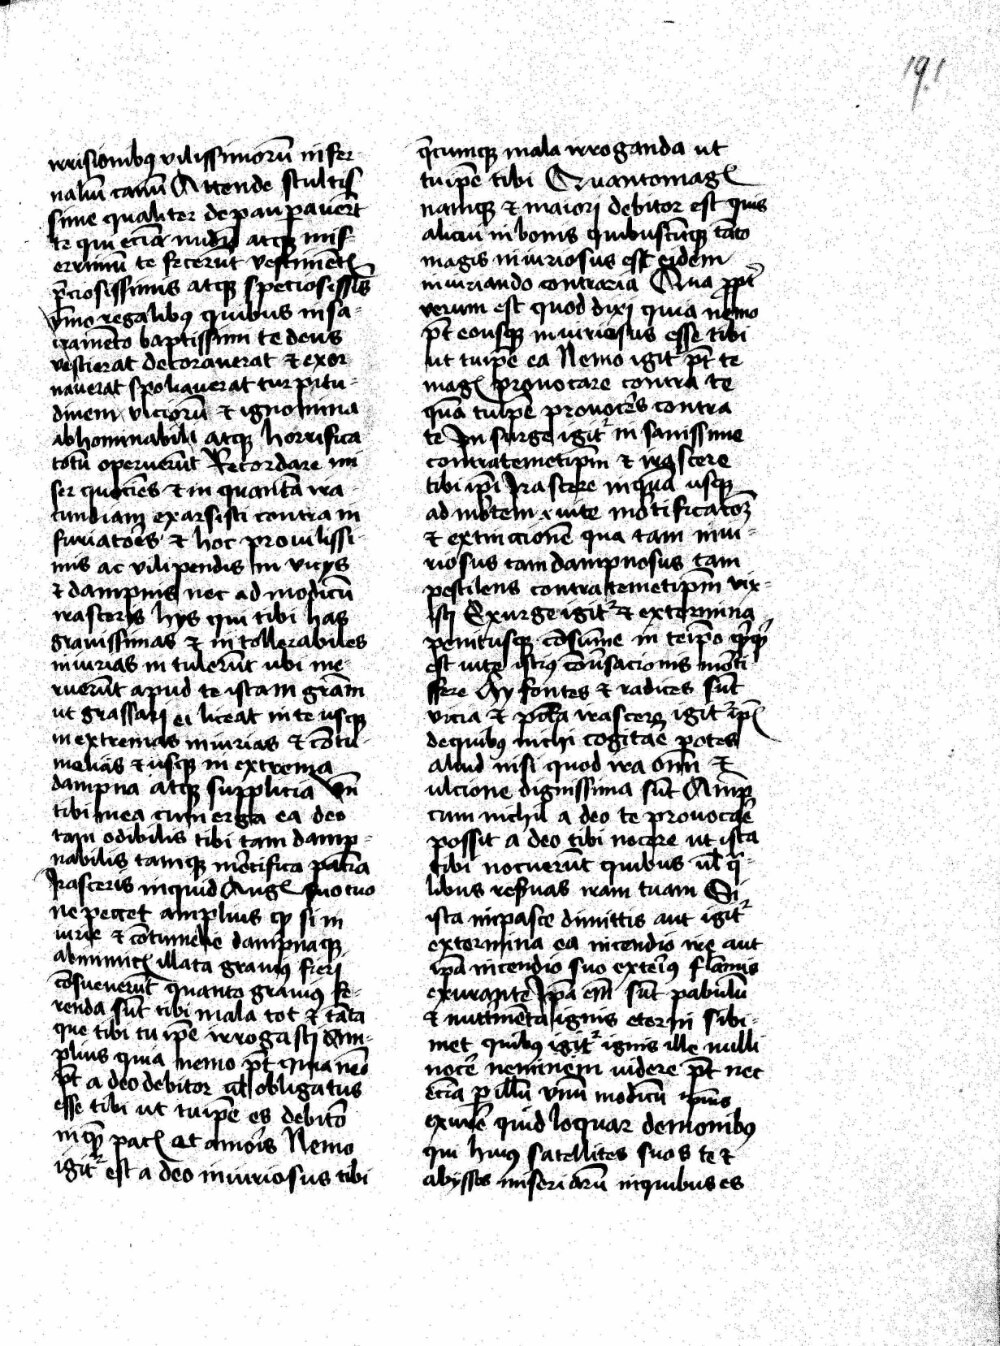 191
irrisionibꝯ vilissimorū infer
naliū canū Attende stultis
sime qualiter depaupauerūt
te qui eciā nudū atqꝫ mis-
errimū te fecerūt vestimētꝭ
p̄ciosissimis atqꝫ speciosissīs
ymo regalibꝯ quibus in sa-
cramēto baptissimi te deus
vestierat decorauerat et exor
nauerat spoliauerat turpitu-
dinem viciorū et ignominia
abhominabili atqꝫ horrifica
totū operuerūt Recordare mi
ser quociēs et in quantā ira-
cundiam exarsisti contra in
furiatorēs et hoc pro vilissi-
mis ac vilipendis iniuriis
et dampnis nec ad modicū
irasceris hijs qui tibi has
grauissimas et in tollerabiles
iniurias in tulerūt ubi me-
ruerūt apud te istam grām
ut grassari ei liceat in te usqꝫ
in extremas iniurias et cōtu-
melias et usqꝫ in extrema
dampna atqꝫ supplicia Vn̄
tibi mea cum erga ea deo
tam odibilis tibi tam damp-
nabilis tamqꝫ mōrtifica pac̄ia
Irasceris inquid Augꝭ suo tuo
ne peccet amplius qꝫ si in
iurie et cōtumelie dampnaqꝫ
ab inimicꝭ illata grauiꝯ fieri
cōsueuerūt quanto grauiꝯ fe-
renda sūt tibi mala tot et tāta
que tibi tu ip̄e irrogasti Am-
plius quia nemo pt̄ quia nēo
pt̄ a deo debitor ul̄ obligatus
esse tibi ut tu ip̄e es debitō
inqꝫ pacꝭ et amoris Nemo
igit᷑ est a deo iniuriosus tibi
q̄cumqꝫ mala irroganda ut
tu ip̄e tibi Quantomagꝭ
namqꝫ et maiori debitor est quis
alicui in bonis quibuscūqꝫ tāto
magis iniuriosus est eidem
iniuriando contraria Qua ppt̄
verum est quod dixi quia nemo
pt̄ eousqꝫ iniuriosus esse tibi
ut tu ip̄e ea Nemo igit᷑ pt̄ te
magꝭ prouocare contra te
quā tu ip̄e prouocēs contra
te In surge igit᷑ in sanissime
contra temetip̄m et irascere
tibi ip̄i Irascere inquā usqꝫ
ad mōrtem vite mōtificatōꝫ
et extinccionē qua tam iniu-
riosus tam dampnosus tam
pestilens contra temetip̄m vix-
isti Exurge igit᷑ et extermina
penitusqꝫ cōsume in teip̄o qꝫqꝫ
est vite istius cōuersacionis mōti
ffere Hy fontes et radices sūt
vicia et pcc̄a irascere igit᷑ ip̄ꝭ
de quibus nichi cogitare potes
aliud nisi quod ira omī et
ulcione dignissima sūt Amp̄
cum nichil a deo te prouocare
possit a deo tibi nocere ut ista
tibi nocuerūt quibus ul̄ q̄-
libus reseruas iram tuam Si
ista inpasce dimittis aut igit᷑
extermina ea incendio ire aut
ip̄a incendio suo exteriꝯ flāmis
exurant te Ip̄a em̄ sūt pabulū
et nutrimēta ignis eterni sibi-
met quibꝯ igit᷑ ignis ille nulli
nocē neminem uidere pt̄ nec
eciā p illū vnū modicū
exurere quid loquar demonibꝯ
qui huiꝯ satellites suos te et
abyssos miseriarū inquibus es